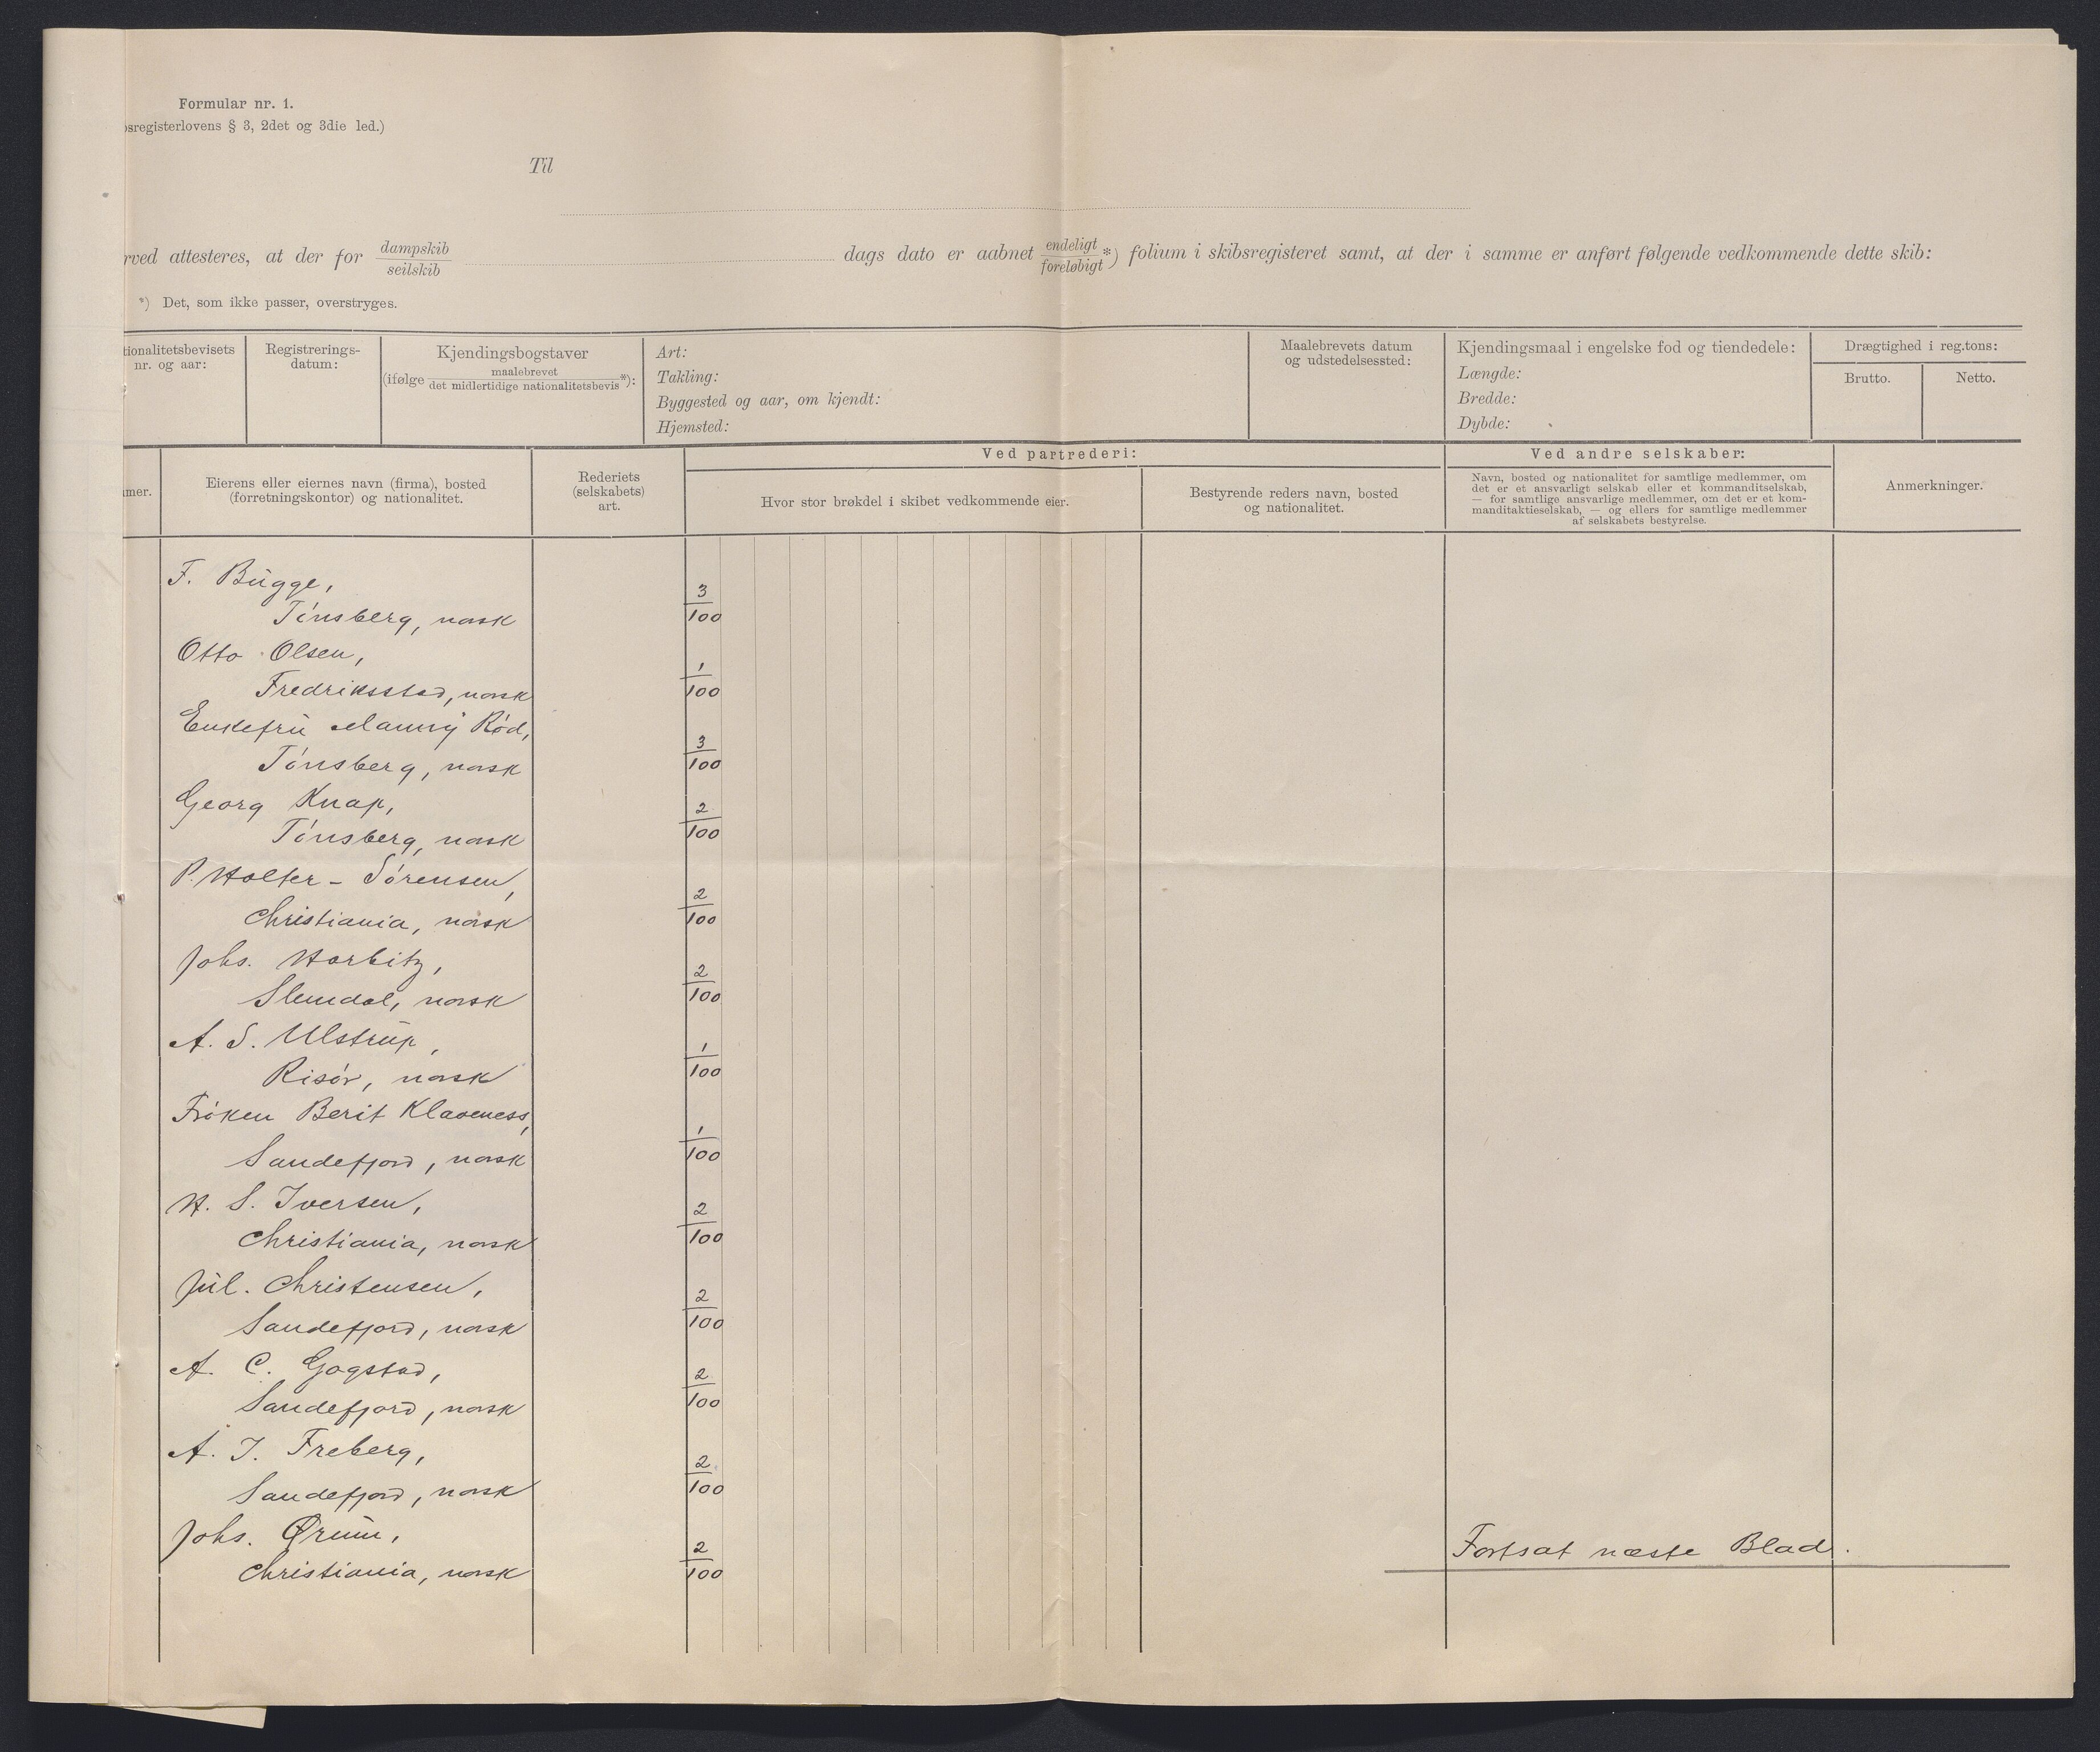 Formular nr. 1.
sregisterlovens § 3, 2det og 3die led.)
Til
rved attesteres, at der for dampskib
seilskib
dags dato er aabnet endeligt
foreløbigt *) folium i skibsregisteret samt, at der i samme er anført følgende vedkommende dette skib:
*) Det, som ikke passer, overstryges.
tionalitetsbevisets
nr. og aar:
Registrerings-
datum:
Kjendingsbogstaver
(ifølge maalebrevet
det midlertidige nationalitetsbevis *):
Art:
Takling:
Byggested og aar, om kjendt:
Hjemsted:
Maalebrevets datum
og udstedelsessted:
Kjendingsmaal i engelske fod og tiendedele:
Længde:
Bredde:
Dybde:
Drægtighed i reg.tons:
Brutto.
Netto.
mer.
Eierens eller eiernes navn (firma), bosted
(forretningskontor) og nationalitet.
Rederiets
(selskabets)
art.
Ved partrederi:
Hvor stor brøkdel i skibet vedkommende eier.
Bestyrende reders navn, bosted
og nationalitet.
Ved andre selskaber:
Navn, bosted og nationalitet for samtlige medlemmer, om
det er et ansvarligt selskab eller et kommanditselskab,
— for samtlige ansvarlige medlemmer, om det er et kom-
manditaktieselskab, — og ellers for samtlige medlemmer
af selskabets bestyrelse.
Anmerkninger.
F. Bugge,
Tönsberg, norsk
3/100
Otto Olsen,
Fredriksstad, norsk
1/100
Enkefru Manny Rød,
Tönsberg, norsk
3/100
Georg Knap,
Tönsberg, norsk
2/100
P. Holter-Sörensen,
Christiania, norsk
2/100
Johs. Horbitz,
Slemdal, norsk
2/100
A. S. Ulstrup,
Risör, norsk
1/100
Fröken Berit Klaveness,
Sandefjord, norsk
1/100
H. S. Iversen,
Christiania, norsk
2/100
Jul. Christensen,
Sandefjord, norsk
2/100
A. C. Gogstad,
Sandefjord, norsk
2/100
A. J. Freberg,
Sandefjord, norsk
2/100
Johs. Ørum,
Christiania, norsk
2/100
Fortsat næste Blad.